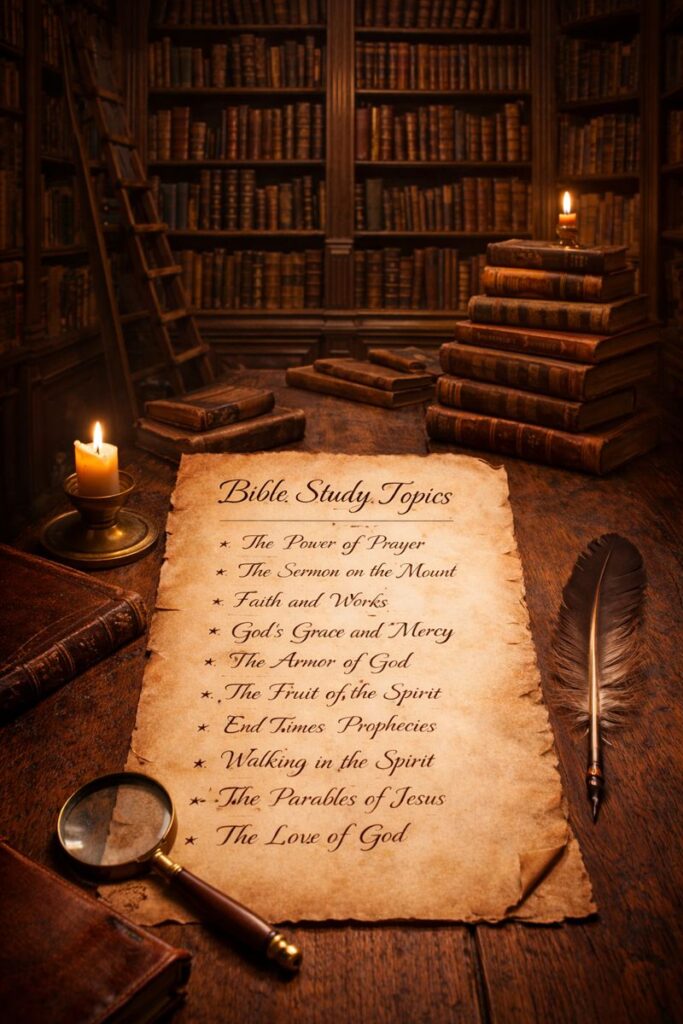 Bible Study Topics
The Power of Prayer
The Sermon on the Mount
Faith and Works
God's Grace and Mercy
The Armor of God
The Fruit of the Spirit
End Times Prophecies
Walking in the Spirit
The Parables of Jesus
The Love of God